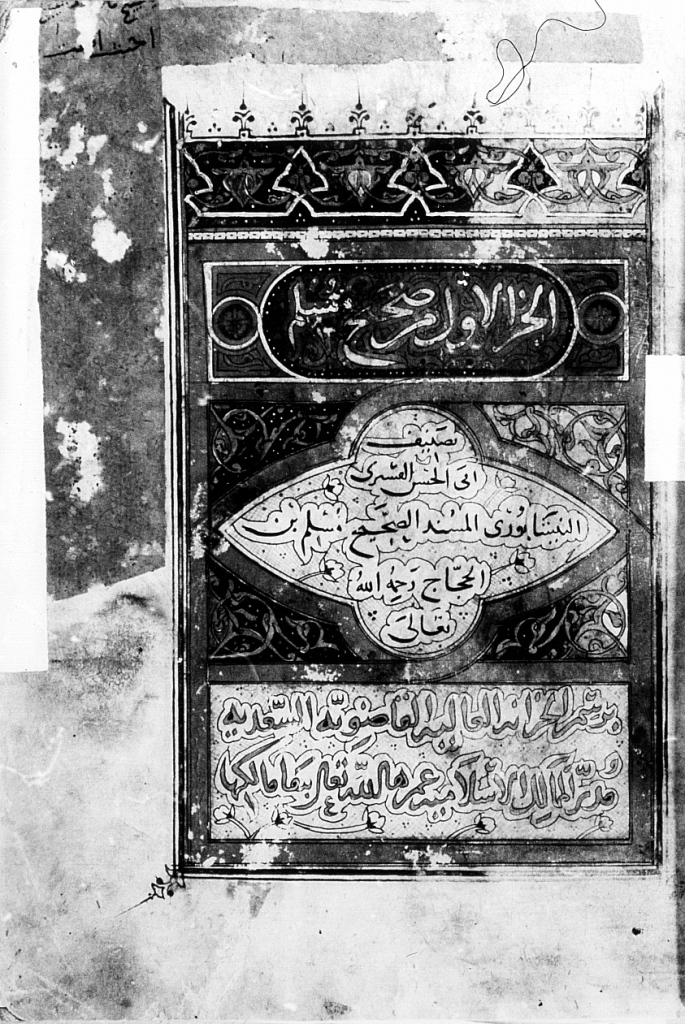 الجزء الاول من صحيح مسلم
تصنيف
ابى الحسن القشيرى
النيسابورى المسند الصحيح مسلم بن
الحجاج رحمه الله
تعالى
برسم الخزانه العاليه القانصويه السعديه
الممالك الاسلاميه عمرها الله تعالى ببقا مالكها